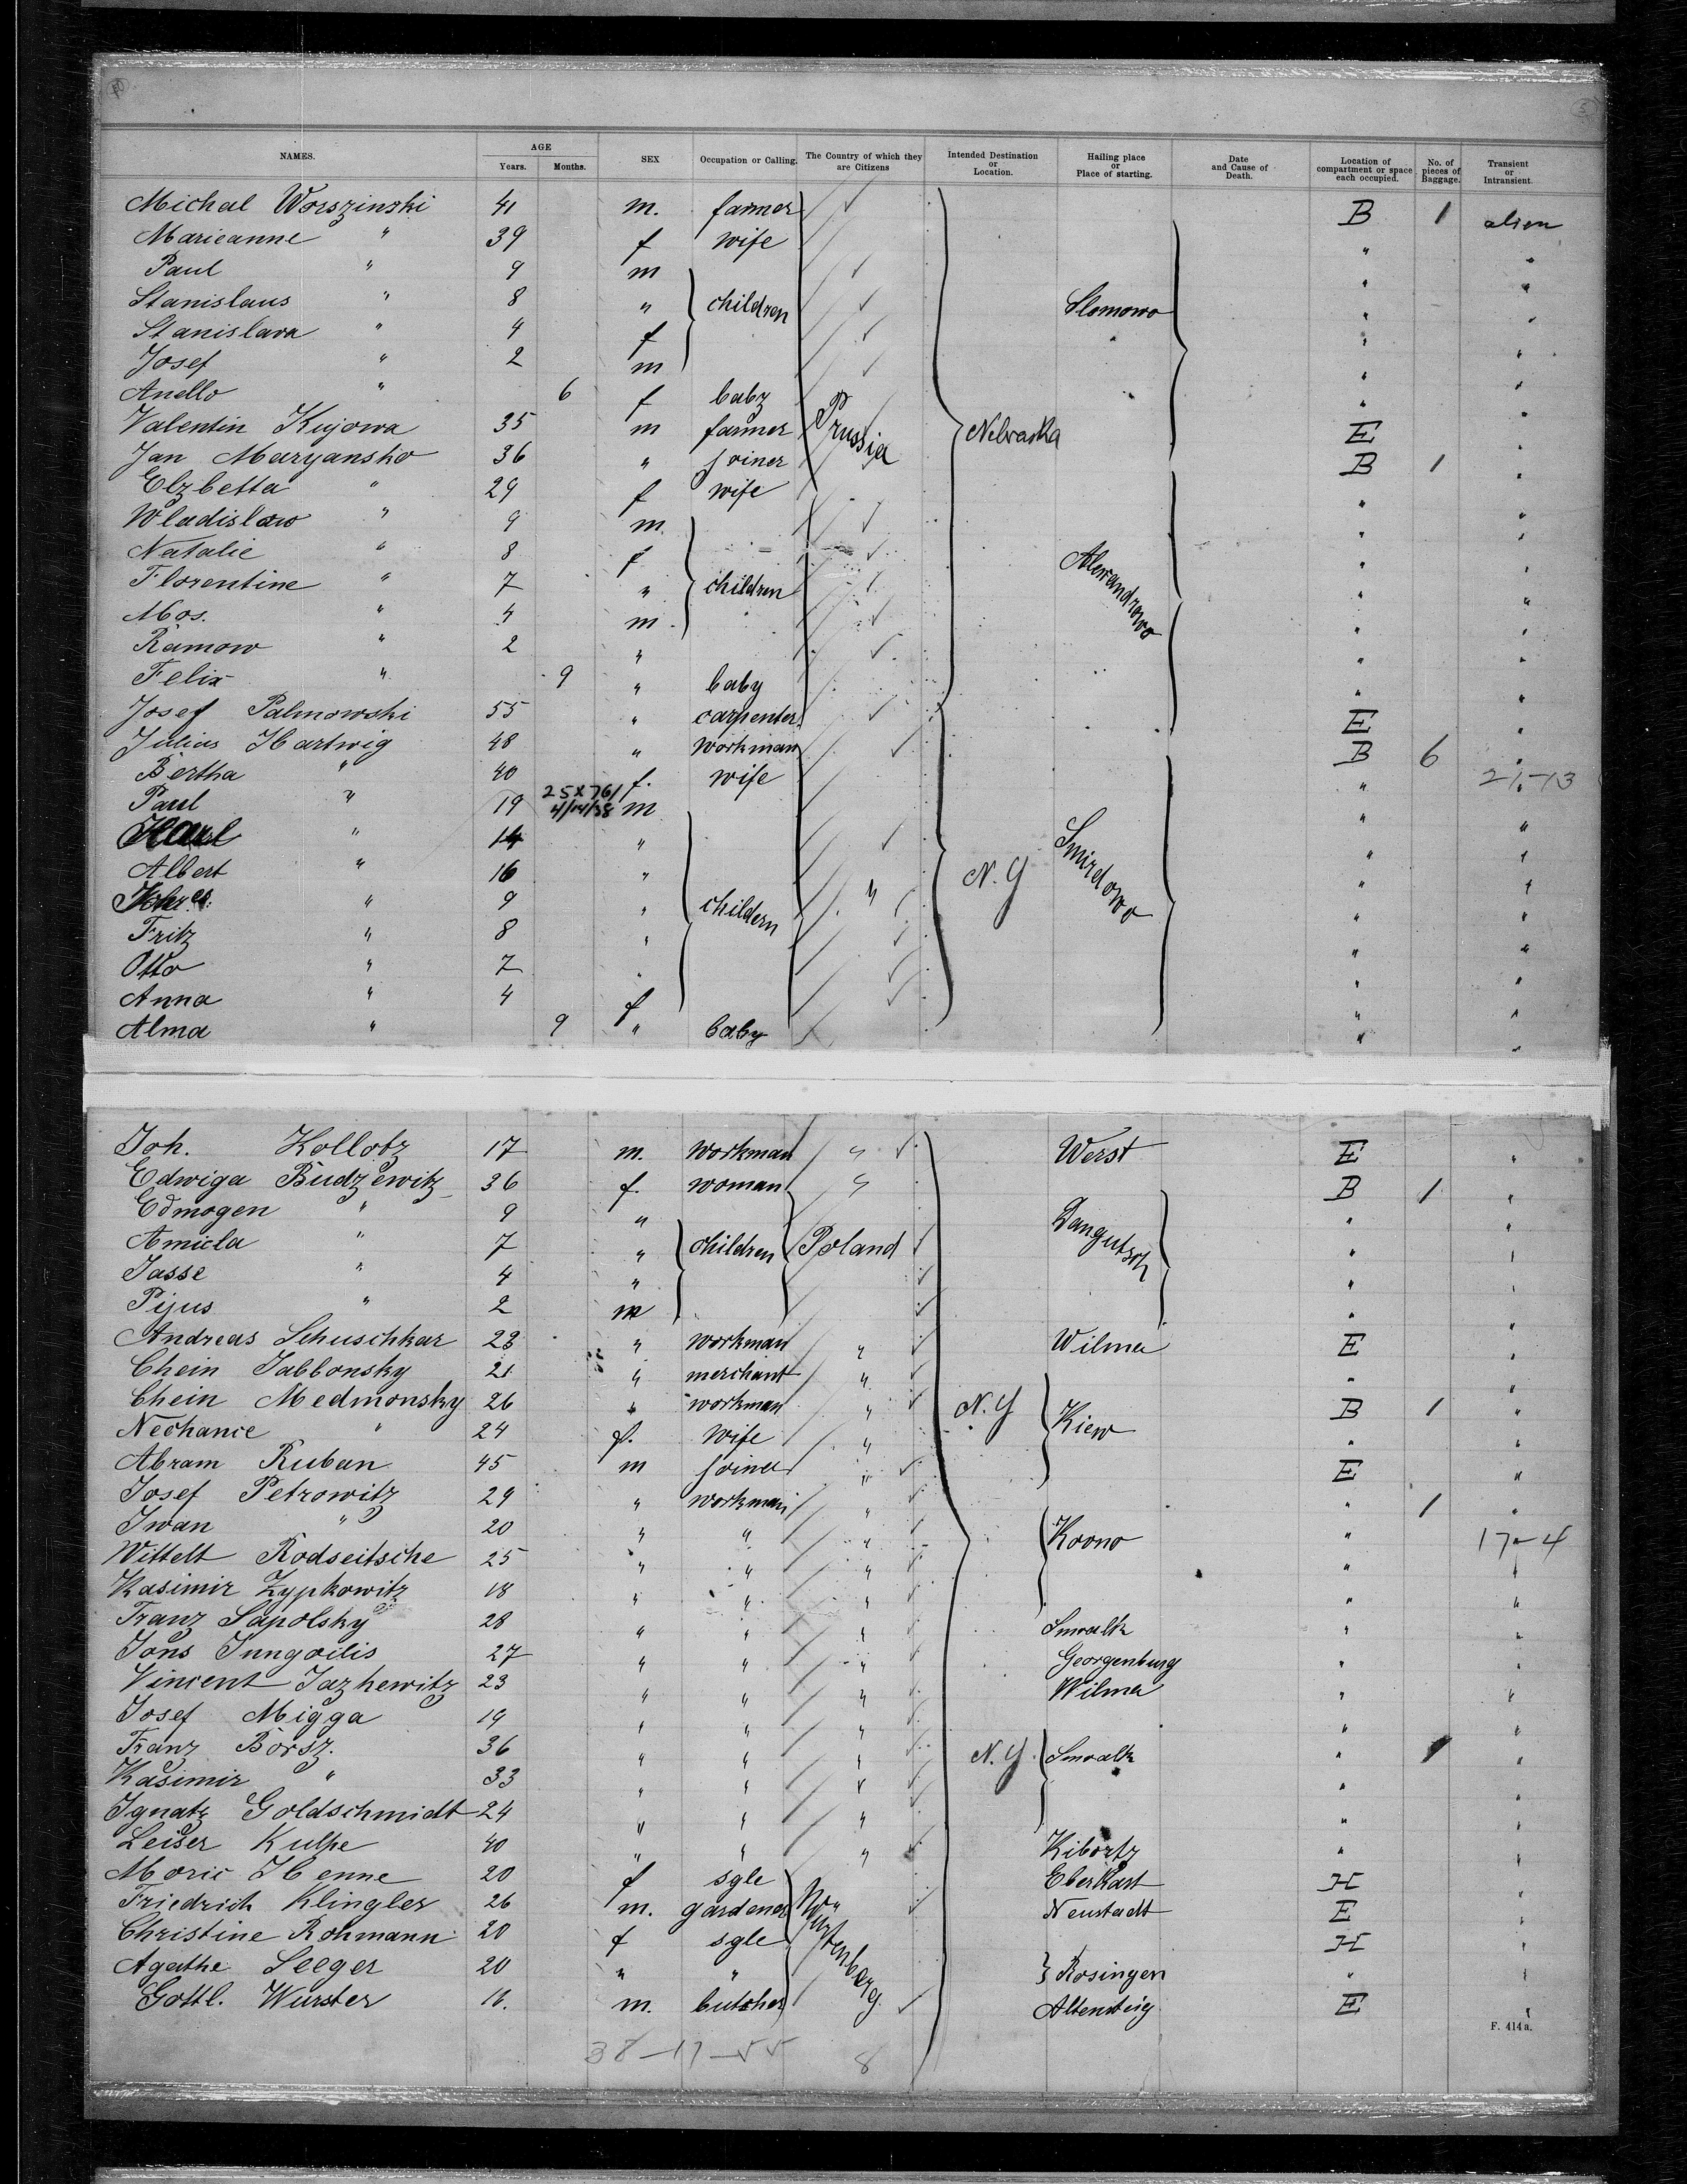 NAMES. AGE Years. Months. SEX Occupation or Calling. The Country of which they are Citizens Intended Destination or Location. Hailing place or Place of starting. Date and Cause of Death. Location of compartment or space each occupied. No. of pieces of Baggage. Transient or Intransient.
Michal Worszinski 41 m. farmer B 1 alien
Marieanne " 39 f wife " "
Paul " 9 m " "
Stanislaus " 8 " children Slomowo " "
Stanislava " 4 f " "
Josef " 2 m " "
Anello " 6 f baby " "
Valentin Kujowa 35 m farmer Prussia Nebraska E "
Jan Maryansko 36 " joiner B 1 "
Elzbetta " 29 f wife " "
Wladislaw " 9 m " "
Natalie " 8 f " "
Florentine " 7 " children Alexandrowo " "
Mos. " 4 m " "
Ramow " 2 " " "
Felix " 9 " baby " "
Josef Palmowski 55 " carpenter E "
Julius Hartwig 48 " workman B 6 "
Bertha " 40 f. wife " 21-13
Paul " 19 25X761 4/14/38 m " "
Karl " 14 " " "
Albert " 16 " N.Y Smirdowo " "
" 9 " children " "
Fritz " 8 " " "
Otto " 7 " " "
Anna " 4 f " "
Alma " 9 " baby " "
Joh. Kollotz 17 m. workman " Werst E "
Edwiga Budzewitz 36 f. woman " B 1 "
Edmogen " 9 " " "
Amicla " 7 " children Poland Dangutsch " "
Jasse " 4 " " "
Pijus " 2 m " "
Andreas Schuschkar 23 " workman " Wilma E "
Chein Jablonsky 21 " merchant " " "
Chein Medmonsky 26 " workman " N.Y Kiew B 1 "
Nechance " 24 f. wife " " "
Abram Ruban 45 m joiner " E "
Josef Petrowitz 29 " workman " " 1 "
Iwan " 20 " " " Kovno " 17-4
Wittelt Rodseitsche 25 " " " " "
Kasimir Zypkowitz 18 " " " " "
Franz Sapolsky 28 " " " Suwalk " "
Jons Jungoilis 27 " " " Georgenburg " "
Vincent Jazhewitz 23 " " " Wilma " "
Josef Migga 19 " " " " "
Franz Borsz. 36 " " " N.Y. Suwalk " 1 "
Kasimir " 33 " " " " "
Ignatz Goldschmidt 24 " " " " "
Leiser Kulpe 40 " " " Kibortz " "
Moric Henne 20 f sgle Eberhart H "
Friedrich Klingler 26 m. gardener Würtenberg Neustadt E "
Christine Rohmann 20 f sgle H "
Agathe Seeger 20 " " Rosingen " "
Gottl. Wurster 16. m. butcher Altensteig E "
F. 414a.
38-17-55 8